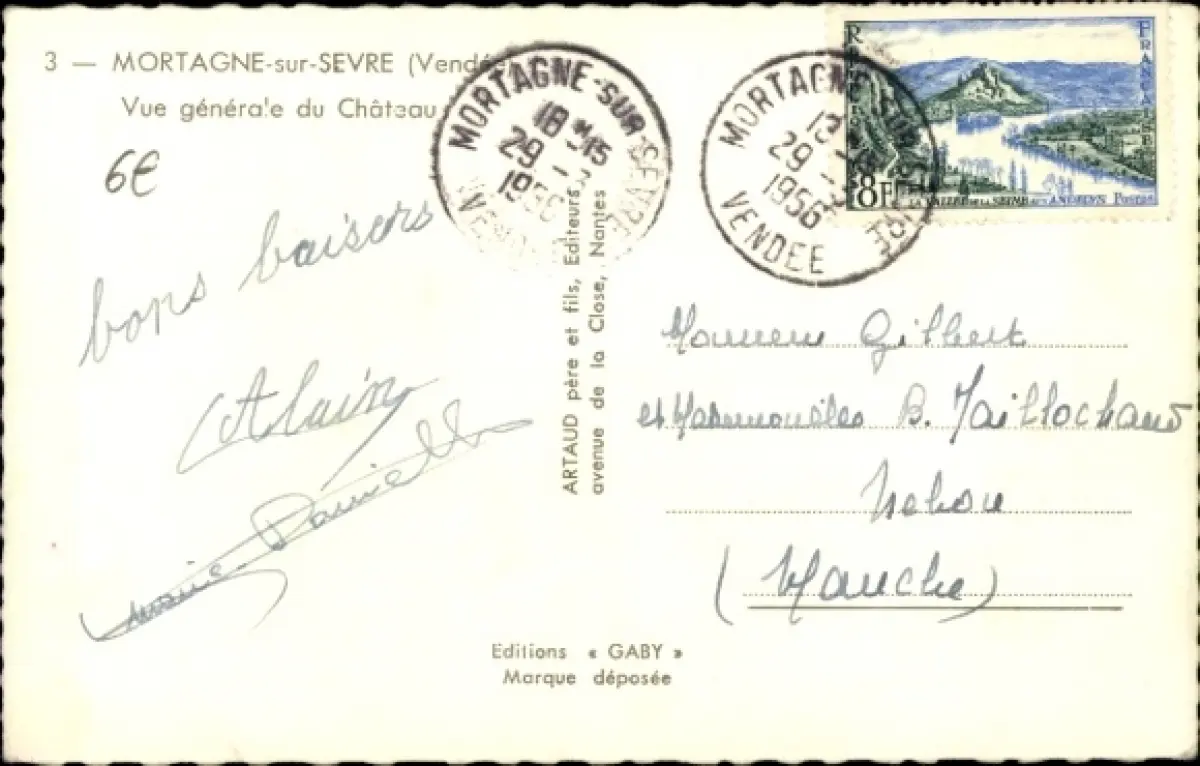 3 — MORTAGNE-sur-SEVRE (Vendée
Vue générale du Château
6€
bons baisers
Alain
Marie-Danielle
MORTAGNE-SUR-SEVRE
18 H15
29 -
1956
VENDEE
MORTAGNE-SUR-SEVRE
29 -
1956
VENDEE
REPUBLIQUE FRANÇAISE
8F
LA VALLEE DE LA SEINE AUX ANDELYS Postes
ARTAUD père et fils, Editeurs
avenue de la Close, Nantes
Gilbert
et Mesdemoiselles B. Taillochaud
Nehou
(Manche)
Editions « GABY »
Marque déposée